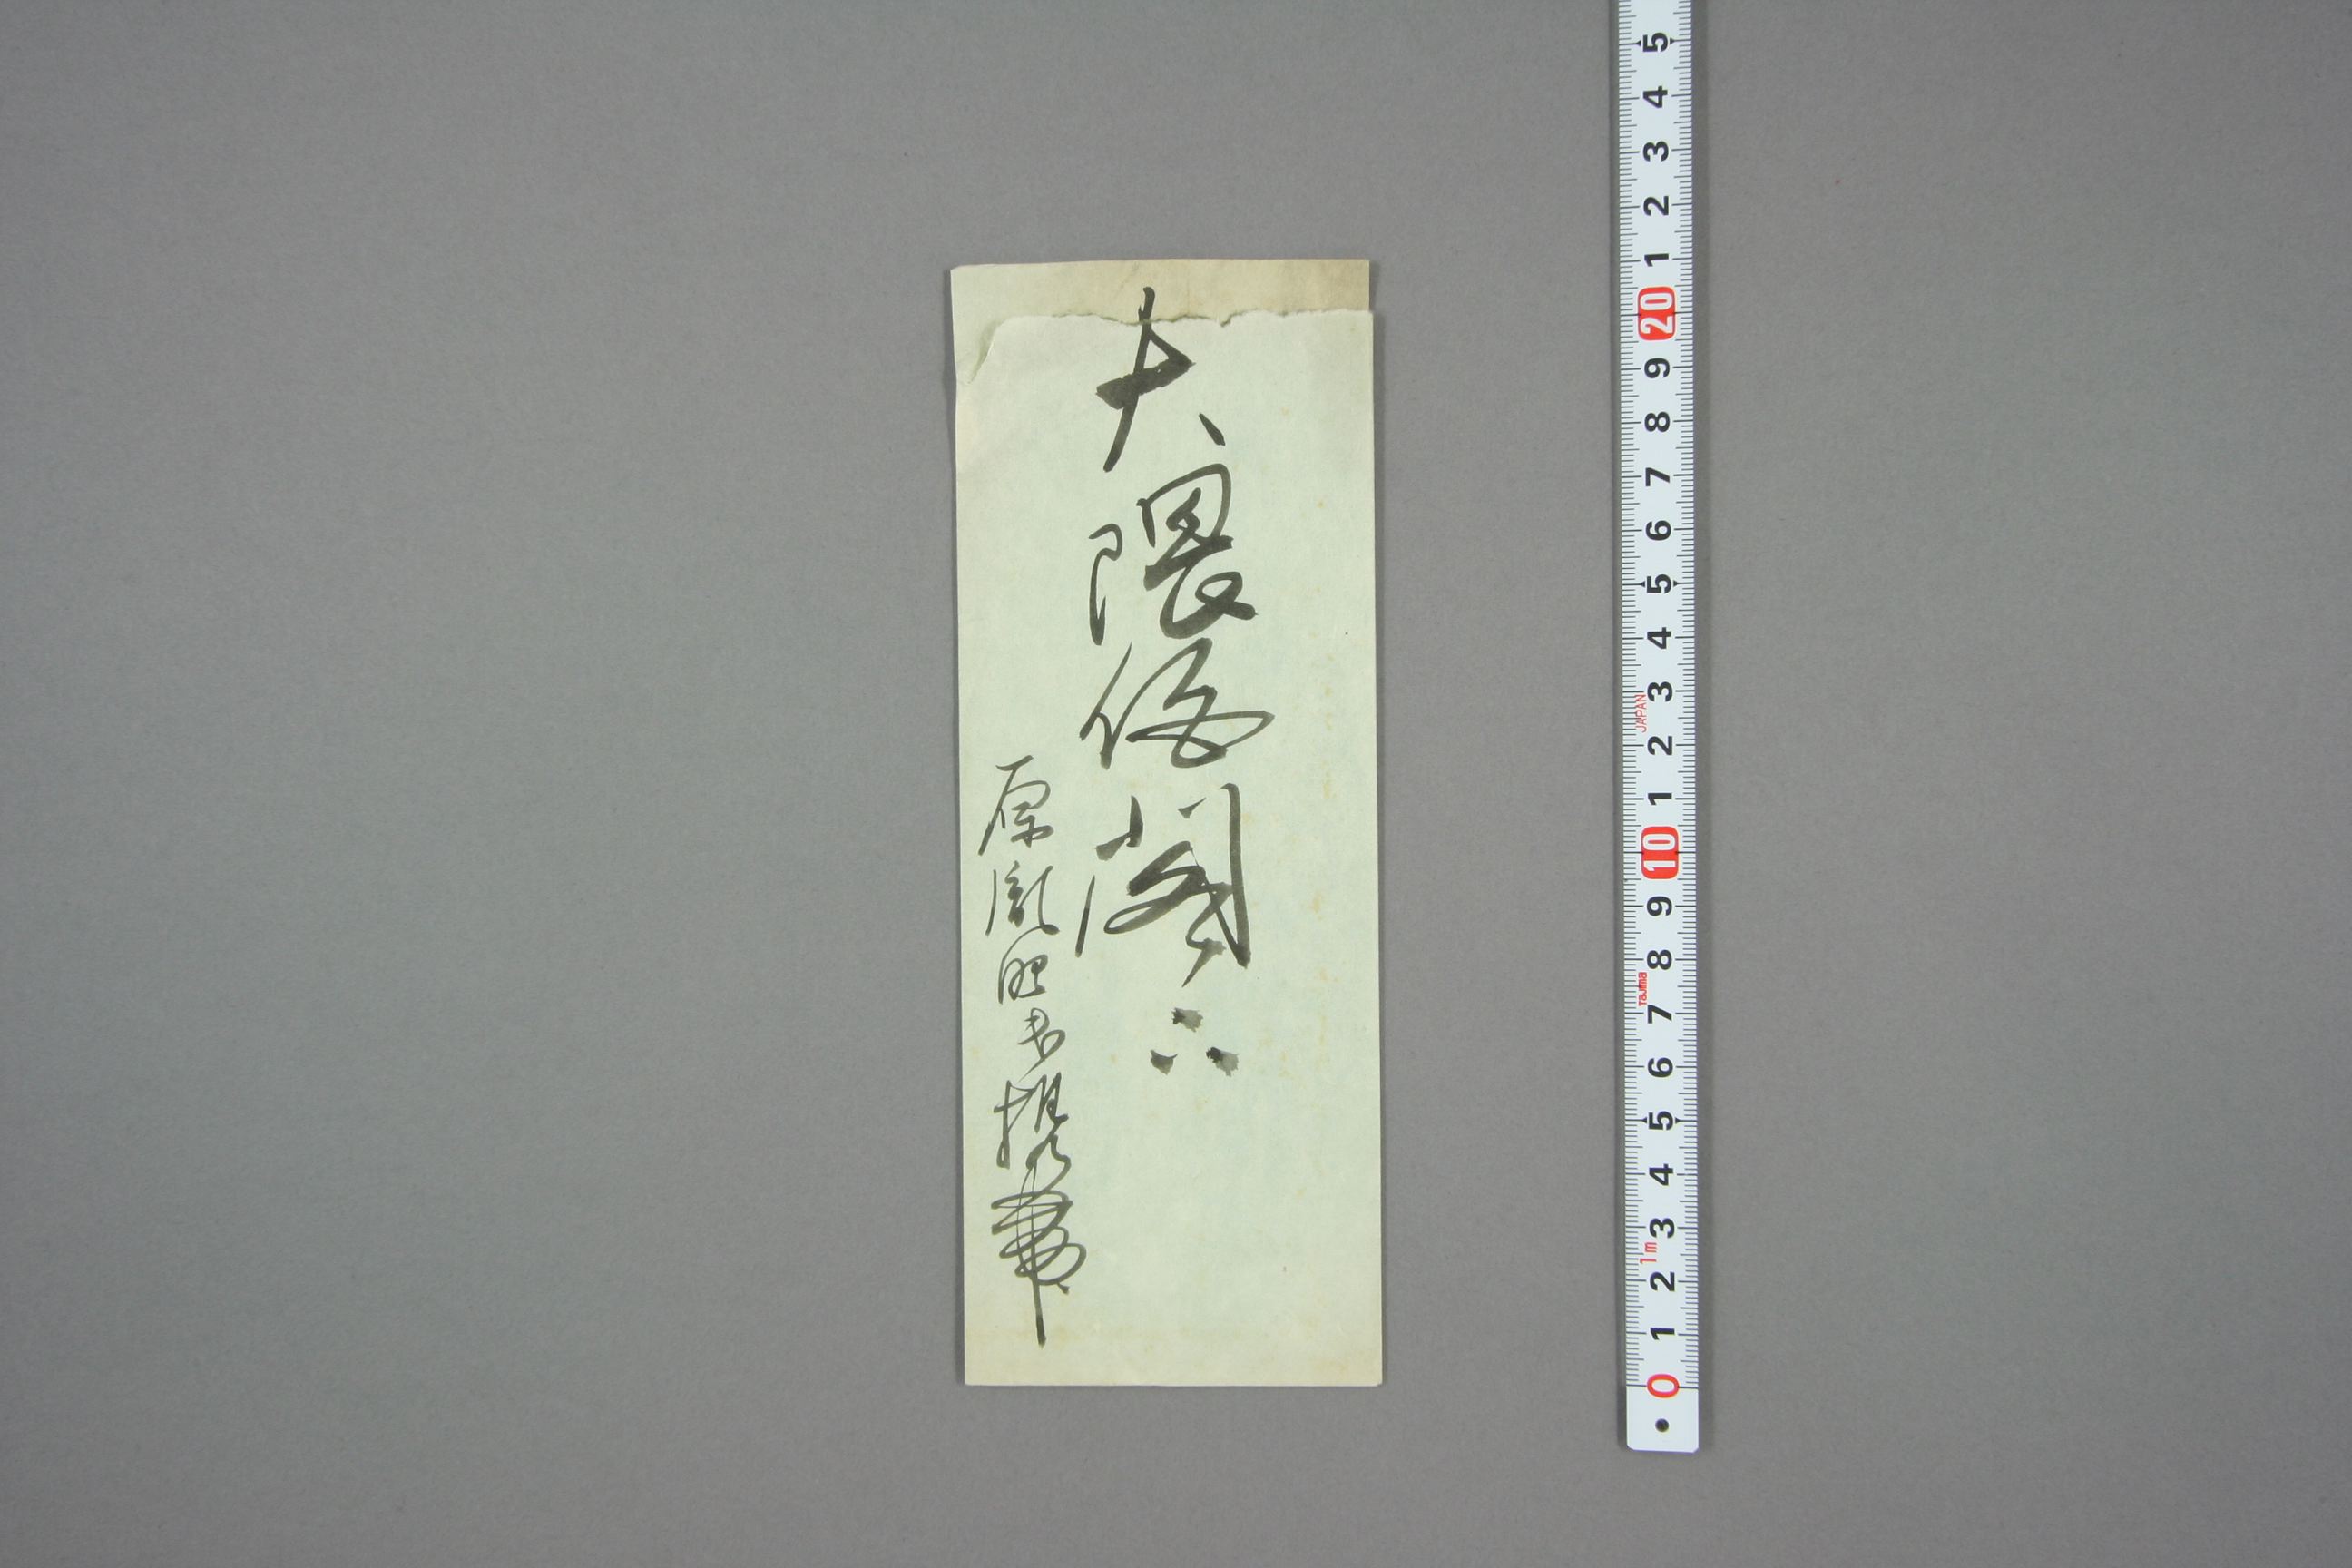 大隈伯閣下
原胤昭書携帯
5
4
3
2
1
20
9
8
7
6
5
4
3
JAPAN
2
1
10
9
8
Tajima
7
6
5
4
3
1m
2
1
0